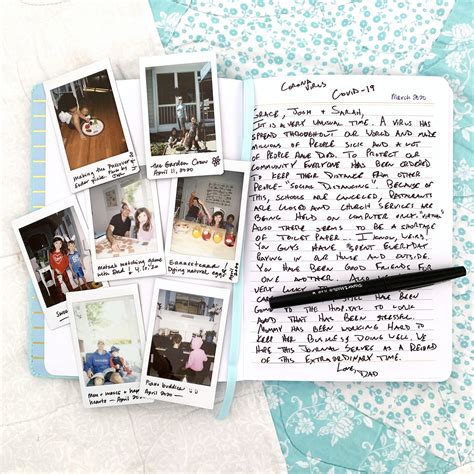 Making the Passover
Seder plate
the Garden Crew
April 11, 2020
Matzah matching game
with Dad! 4.6.2020
Easter
Dying natural eggs
hearts — April 2020
Piano buddies
April 2020
Corona
Virus
COVID-19
March 2020
Grace, Josh & Sarah,
It is a very unusual time. A virus has
spread throughout our world and made
millions of people sick and a lot
of people have died. To protect our
community everyone has been ordered
to keep their distance from other
people - "Social Distancing". Because of
this, schools are canceled, restaurants
are closed and church services are
being held on computer only.
Also there seems to be a shortage
of toilet paper... I know, weird!
You guys have spent everyday
playing in our house and outside.
You have been good friends for
one another.
very lucky
have been
to the hospital to work
and that has been stressful.
Mommy has been working hard to
keep her business doing well. We
hope this journal serves as a record
of this extraordinary time.
Love,
Dad